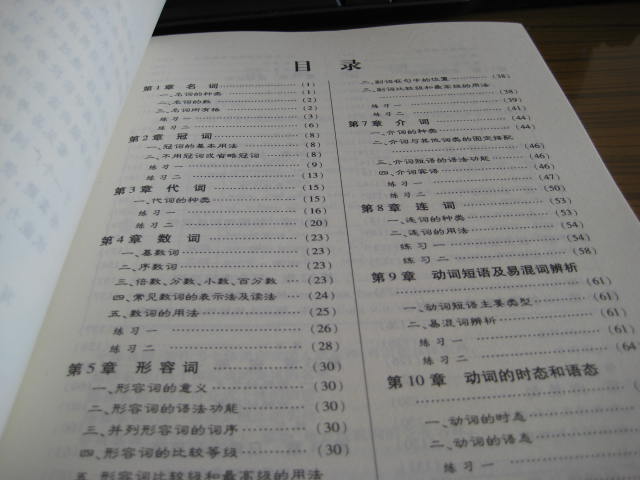 目 录
第1章 名 词 ………… (1)
一、名词的种类 ………… (1)
二、名词的数 ………… (2)
三、名词所有格 ………… (2)
练习一 ………… (3)
练习二 ………… (6)
第2章 冠 词 ………… (8)
一、冠词的基本用法 ………… (8)
二、不用冠词或省略冠词 ………… (8)
练习一 ………… (9)
练习二 ………… (13)
第3章 代 词 ………… (15)
一、代词的种类 ………… (15)
练习一 ………… (16)
练习二 ………… (20)
第4章 数 词 ………… (23)
一、基数词 ………… (23)
二、序数词 ………… (23)
三、倍数、分数、小数、百分数 … (23)
四、常见数词的表示法及读法 …… (24)
五、数词的用法 ………… (25)
练习一 ………… (26)
练习二 ………… (28)
第5章 形容词 ………… (30)
一、形容词的意义 ………… (30)
二、形容词的语法功能 ………… (30)
三、并列形容词的词序 ………… (30)
四、形容词的比较等级 ………… (30)
五、形容词比较级和最高级的用法
二、副词在句中的位置 ………… (38)
三、副词比较级和最高级的用法
………… (38)
练习一 ………… (39)
练习二 ………… (41)
第7章 介 词 ………… (44)
一、介词的种类 ………… (44)
二、介词与其他词类的固定搭配
………… (46)
三、介词短语的语法功能 ………… (46)
四、介词宾语 ………… (46)
练习一 ………… (47)
练习二 ………… (50)
第8章 连 词 ………… (53)
一、连词的种类 ………… (53)
二、连词的用法 ………… (54)
练习一 ………… (54)
练习二 ………… (58)
第9章 动词短语及易混词辨析
………… (61)
一、动词短语主要类型 ………… (61)
二、易混词辨析 ………… (61)
练习一 ………… (61)
练习二 ………… (64
第10章 动词的时态和语态
一、动词的时态 …………
二、动词的语态 …………
练习一 …………